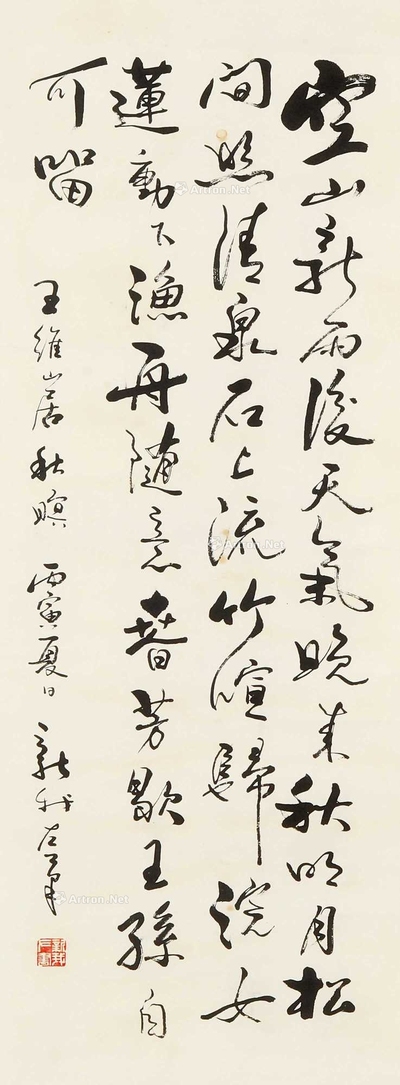 空山新雨後天氣晚来秋明月松
間照清泉石上流竹喧歸浣女
蓮動下漁舟随意春芳歇王孫自
可留
王維山居秋暝 丙寅夏日 新我左筆
Artron.Net
Artron.Net
Artron.Net